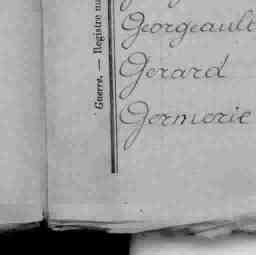 Guerre. — Registre
Georgeault
Gerard
Germerie